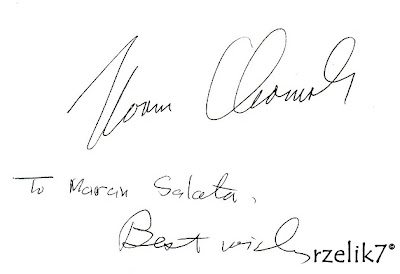 Noam Chomsky
To Marcin Salata,
Best wishes
rzelik7©